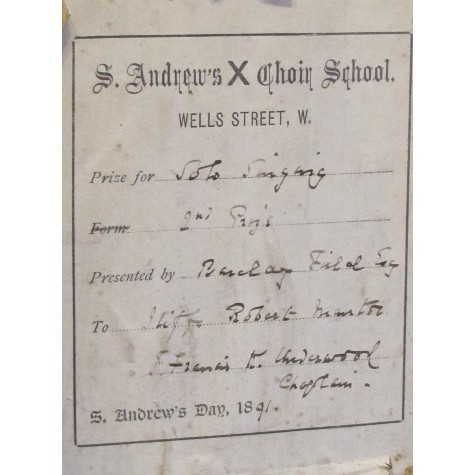 S. Andrew's X Choir School.
WELLS STREET, W.
Prize for Solo Singing
Form 2nd
Presented by Barclay Field Esq
To Robert
Francis Underwood
Chaplain.
S. Andrew's Day, 1891.